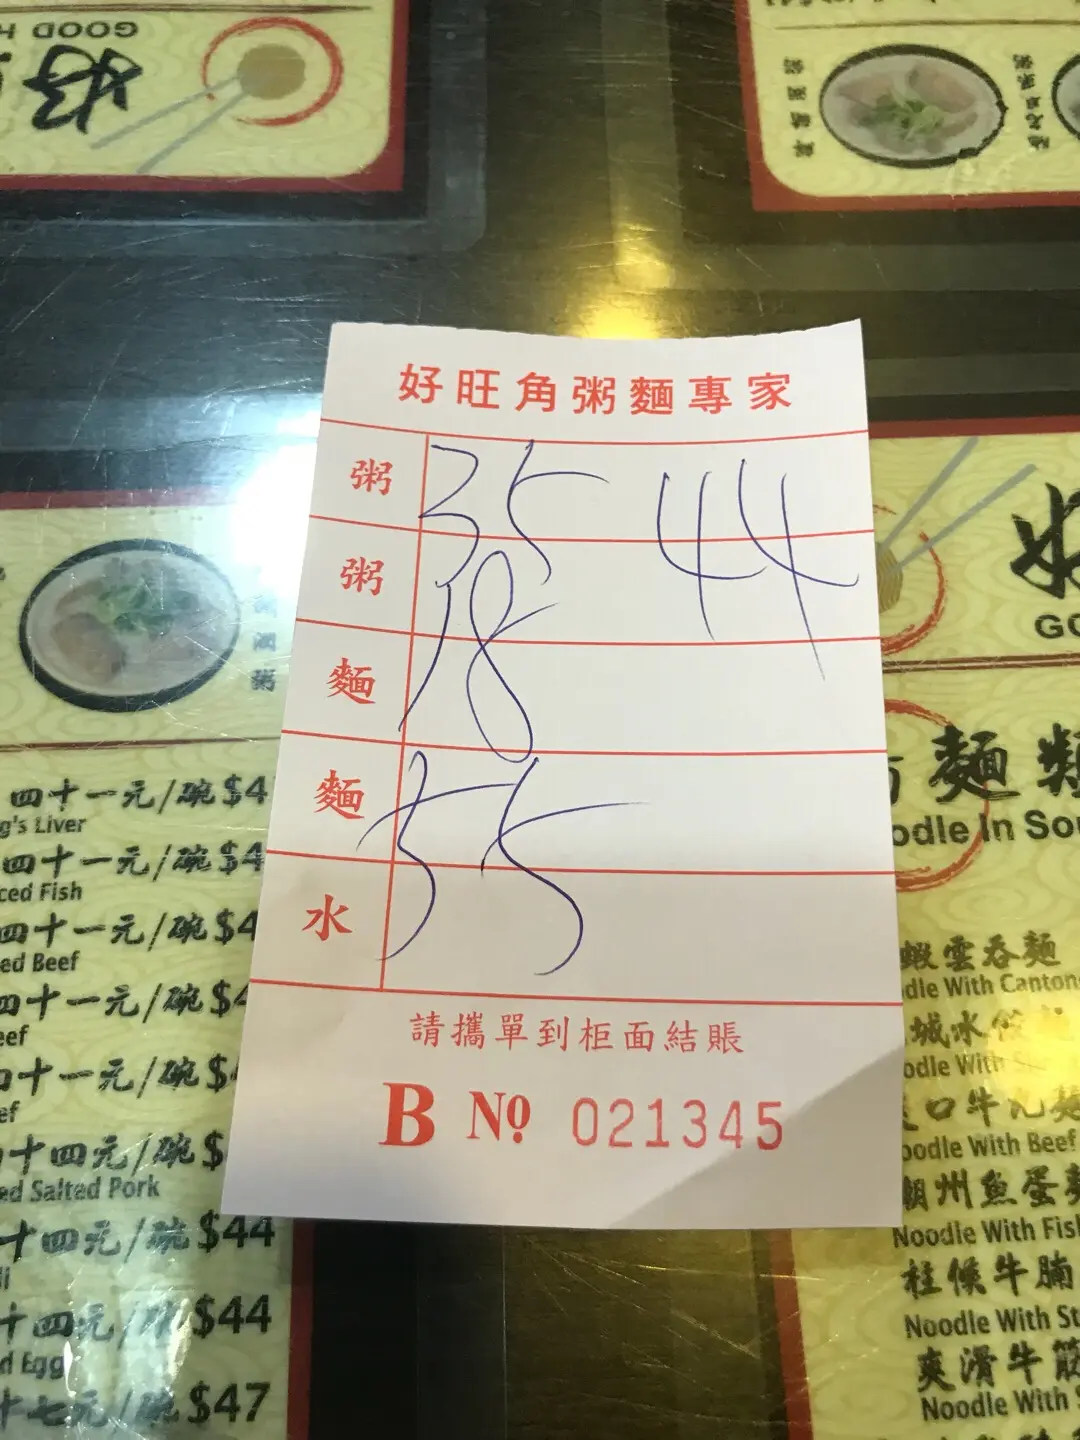 GOOD H
好
好旺角粥麵專家
粥 35 44
粥 18
麵
麵 55
水
請攜單到柜面結賬
B No 021345
四十一元/碗 $4
g's Liver
四十一元/碗 $4
ced Fish
四十一元/碗 $4
ed Beef
四十一元/碗 $4
eef
十一元/碗 $
ef
十四元/碗 $
ed Salted Pork
十四元/碗 $44
十四元/碗 $44
d Egg
十七元/碗 $47
好
GO
麵類
odle In Sou
蝦雲吞麵
dle With Canton
城水餃麵
odle With S
口牛丸麵
oodle With Beef
潮州魚蛋麵
Noodle With Fish
柱候牛腩
Noodle With St
爽滑牛筋
Noodle With S